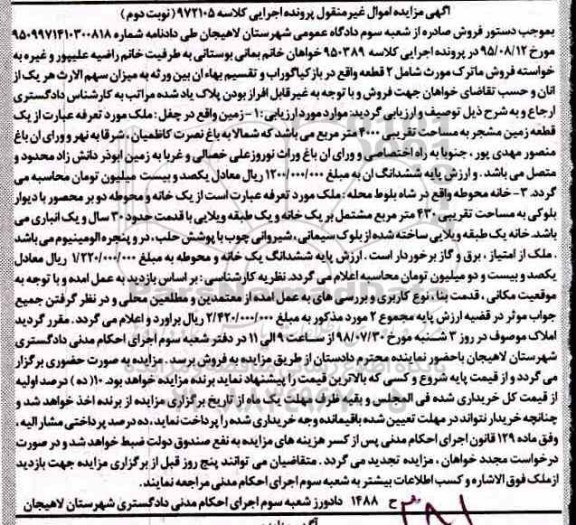 آگهی مزایده اموال غیرمنقول پرونده اجرایی کلاسه ۹۷۲۱۰۵ (نوبت دوم)
بموجب دستور فروش صادره از شعبه سوم دادگاه عمومی شهرستان لاهیجان طی دادنامه شماره ۹۵۰۹۹۷۱۴۱۰۳۰۰۸۱۸
مورخ ۹۵/۰۸/۱۲ در پرونده اجرایی کلاسه ۹۵۰۳۸۹ خواهان خانم یمانی بوستانی به طرفیت خانم راضیه علیپور و غیره به
خواسته فروش ماترک مورث شامل ۲ قطعه واقع در بازکیاگوراب و تقسیم بهاء ان بین ورثه به میزان سهم الارث هر یک از
انان و حسب تقاضای خواهان جهت فروش و با توجه به غیر قابل افراز بودن پلاک یاد شده مراتب به کارشناس دادگستری
ارجاع و به شرح ذیل توصیف و ارزیابی گردید: موارد مورد ارزیابی: ۱- زمین واقع در چفل: ملک مورد تعرفه عبارت از یک
قطعه زمین مشجر به مساحت تقریبی ۴۰۰۰ متر مربع می باشد که شمالا به باغ نصرت کاظمیان، شرقا به نهر و ورای ان باغ
منصور مهدی پور، جنوبا به راه اختصاصی و ورای ان باغ وراث نوروزعلی خصالی و غربا به زمین ابوذر دانش زاد محدود و
متصل می باشد. و ارزش پایه ششدانگ ان به مبلغ ۱۲۰۰/۰۰۰/۰۰۰ ریال معادل یکصد و بیست میلیون تومان محاسبه می
گردد. ۳- خانه محوطه واقع در شاه بلوط محله: ملک مورد تعرفه عبارت است از یک خانه و محوطه دو بر محصور با دیوار
بلوکی به مساحت تقریبی ۴۳۰ متر مربع مشتمل بر یک خانه و یک طبقه ویلایی با قدمت حدود ۳۰ سال و یک انباری می
باشد. خانه یک طبقه ویلایی ساخته شده از بلوک سیمانی، شیروانی چوب با پوشش حلب، در و پنجره الومینیوم می باشد
. ملک از امتیاز، برق و گاز برخوردار است. ارزش پایه ششدانگ یک خانه و محوطه به مبلغ ۱/۲۲۰/۰۰۰/۰۰۰ ریال معادل
یکصد و بیست و دو میلیون تومان محاسبه اعلام می گردد. نظریه کارشناسی: بر اساس بازدید به عمل امده و با توجه به
موقعیت مکانی، قدمت بنا، نوع کاربری و بررسی های به عمل امده از معتمدین و مطلعین محلی و در نظر گرفتن جمیع
جواب موثر در قضیه ارزش پایه مجموع ۲ مورد مذکور به مبلغ ۲/۴۲۰/۰۰۰/۰۰۰ ریال براورد و اعلام می گردد. مقرر گردید
املاک موصوف در روز ۳ شنبه مورخ ۹۸/۰۷/۳۰ از ساعت ۹ الی ۱۱ در دفتر شعبه سوم اجرای احکام مدنی دادگستری
شهرستان لاهیجان با حضور نماینده محترم دادستان از طریق مزایده به فروش برسد. مزایده به صورت حضوری برگزار
می گردد و از قیمت پایه شروع و کسی که بالاترین قیمت را پیشنهاد نماید برنده مزایده خواهد بود. ۱۰ (ده) درصد اولیه
از قیمت کل خریداری شده فی المجلس و بقیه ظرف مهلت یک ماه از تاریخ برگزاری مزایده از برنده اخذ خواهد شد و
چنانچه خریدار نتواند در مهلت تعیین شده باقیمانده وجه خریداری شده را پرداخت نماید، ده درصد پرداختی مشار الیه،
وفق ماده ۱۲۹ قانون اجرای احکام مدنی پس از کسر هزینه های مزایده به نفع صندوق دولت ضبط خواهد شد و در صورت
درخواست مجدد خواهان، مزایده تجدید می گردد. متقاضیان می توانند پنج روز قبل از برگزاری مزایده جهت بازدید
از ملک فوق الاشاره و کسب اطلاعات بیشتر به شعبه سوم اجرای احکام مدنی مراجعه نمایند.
ح ۱۴۸۸ دادورز شعبه سوم اجرای احکام مدنی دادگستری شهرستان لاهیجان